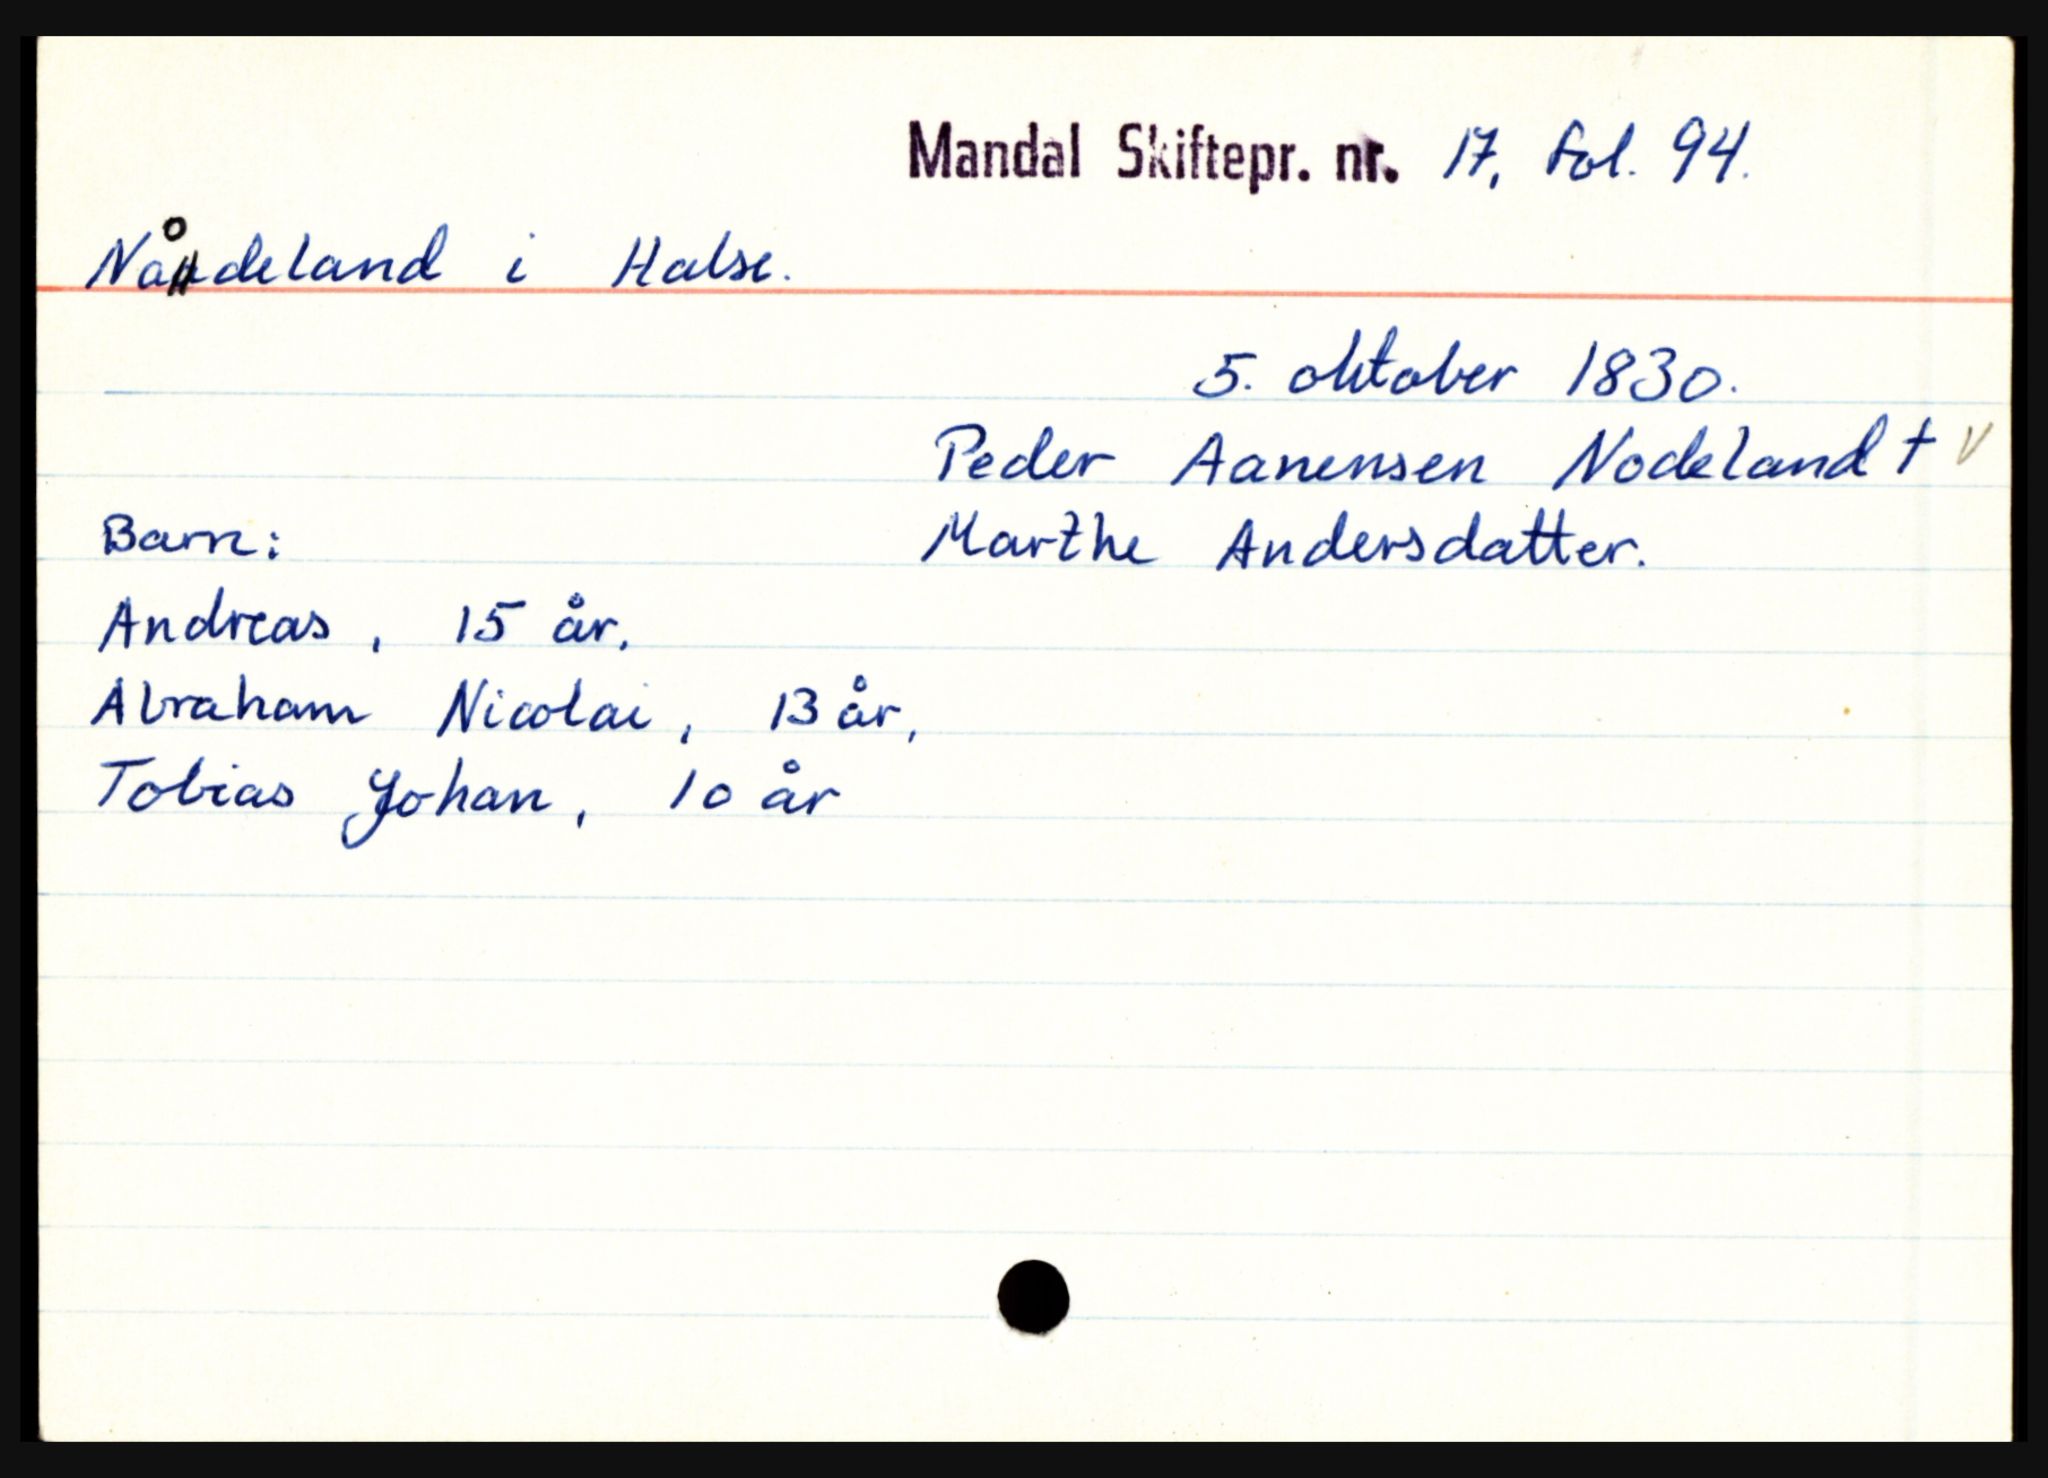 Mandal Skiftepr. nr. 17, fol. 94.
Nådeland i Halse.
5. oktober 1830.
Peder Aanensen Nodeland † V
Marthe Andersdatter.
Barn:
Andreas, 15 år,
Abraham Nicolai, 13 år,
Tobias Johan, 10 år